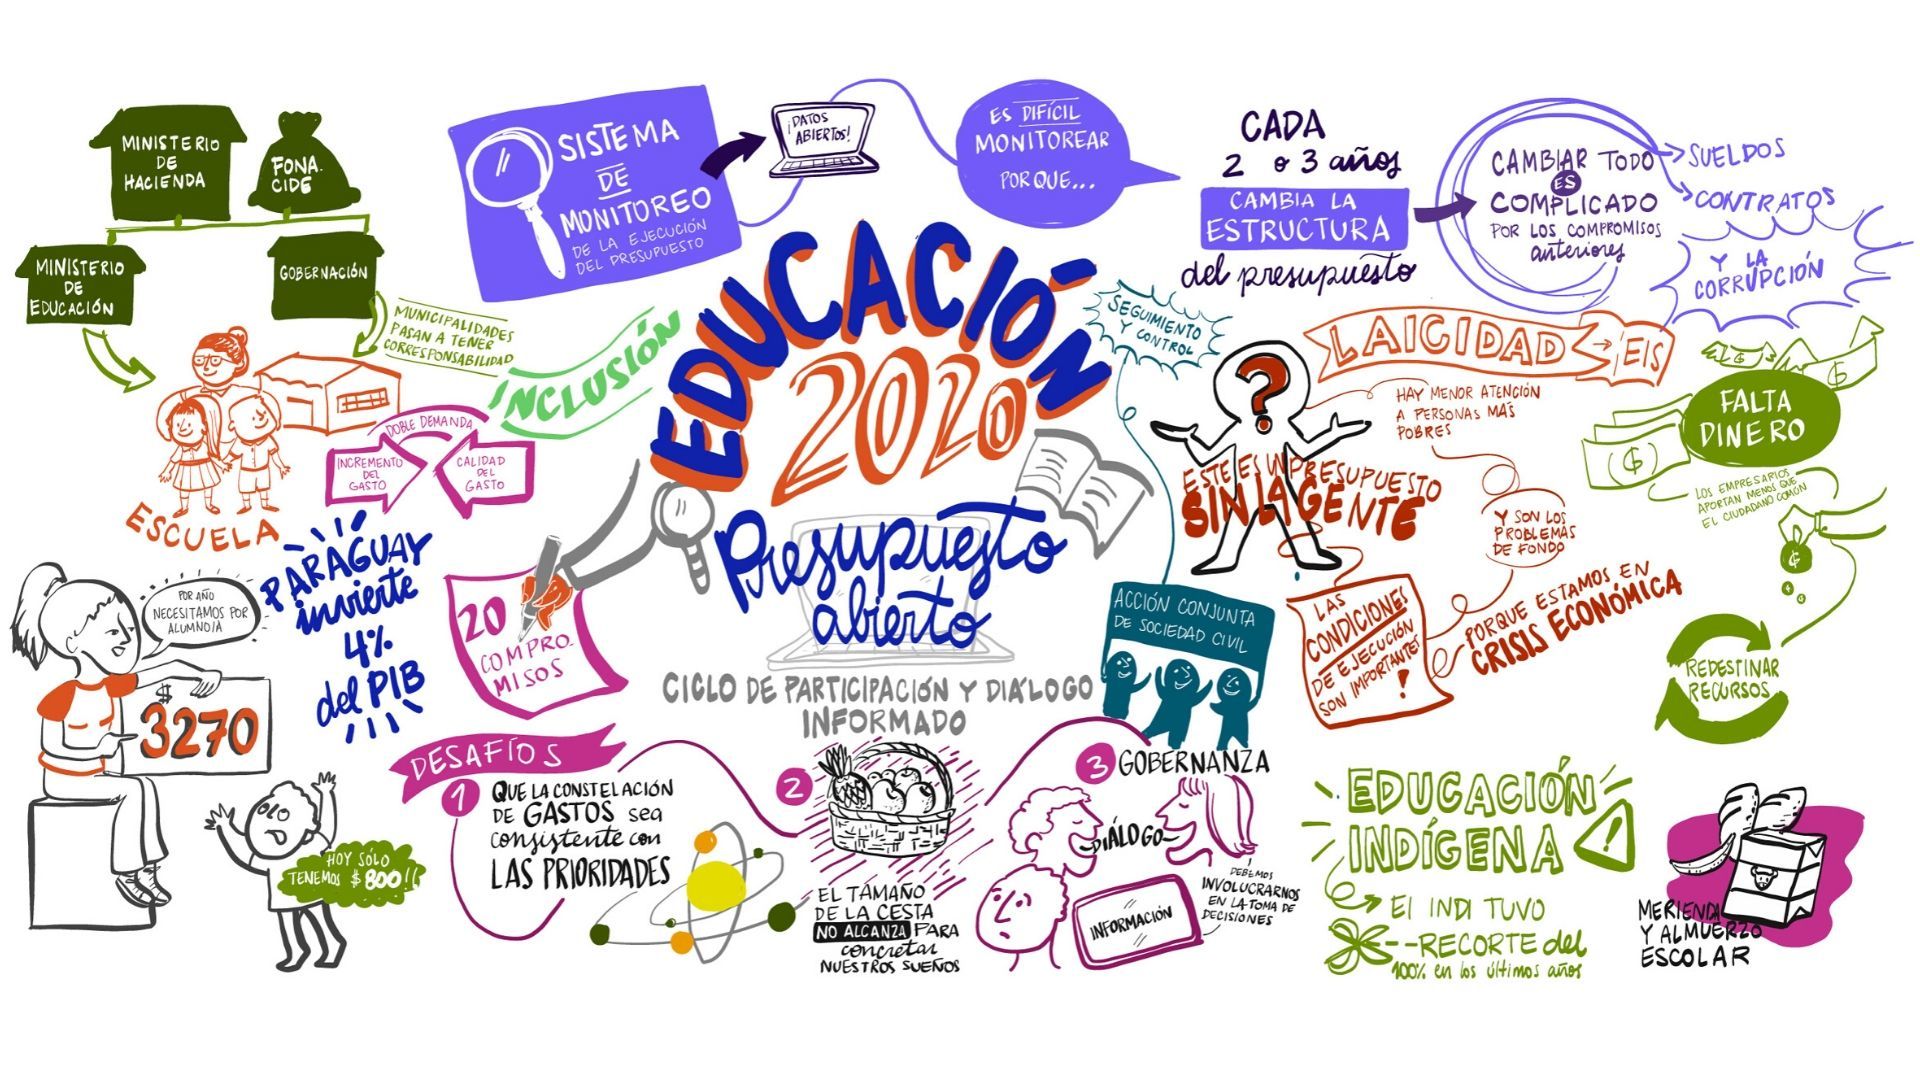 MINISTERIO
DE
HACIENDA
FONA.
CIDE
MINISTERIO
DE
EDUCACIÓN
GOBERNACIÓN
MUNICIPALIDADES
PASAN A TENER
CORRESPONSABILIDAD
ESCUELA
SISTEMA
DE
MONITOREO
DE LA EJECUCIÓN
DEL PRESUPUESTO
¡DATOS
ABIERTOS!
ES DIFÍCIL
MONITOREAR
PORQUE...
CADA
2 o 3 años
CAMBIA LA
ESTRUCTURA
del presupuesto
CAMBIAR TODO
ES
COMPLICADO
POR LOS COMPROMISOS
anteriores
SUELDOS
CONTRATOS
Y LA
CORRUPCIÓN
INCLUSIÓN
DOBLE DEMANDA
INCREMENTO
DEL
GASTO
CALIDAD
DEL
GASTO
EDUCACIÓN
2020
Presupuesto
abierto
CICLO DE PARTICIPACIÓN Y DIÁLOGO
INFORMADO
SEGUIMIENTO
Y CONTROL
ACCIÓN CONJUNTA
DE SOCIEDAD CIVIL
?
ESTE ES UN PRESUPUESTO
SIN LA GENTE
LAICIDAD
EIS
HAY MENOR ATENCIÓN
A PERSONAS MÁS
POBRES
Y SON LOS
PROBLEMAS
DE FONDO
PORQUE ESTAMOS EN
CRISIS ECONÓMICA
LAS
CONDICIONES
DE EJECUCIÓN
SON IMPORTANTES
!
$
$
FALTA
DINERO
LOS EMPRESARIOS
APORTAN MENOS QUE
EL CIUDADANO COMÚN
REDESTINAR
RECURSOS
PARAGUAY
invierte
4%
del PIB
20
COMPRO-
MISOS
POR AÑO
NECESITAMOS POR
ALUMNO/A
$
3270
HOY SÓLO
TENEMOS $ 800!!
DESAFÍOS
1
QUE LA CONSTELACIÓN
DE GASTOS sea
consistente con
LAS PRIORIDADES
2
EL TAMAÑO
DE LA CESTA
NO ALCANZA PARA
concretar
NUESTROS SUEÑOS
3 GOBERNANZA
DIÁLOGO
INFORMACIÓN
DEBEMOS
INVOLUCRARNOS
EN LA TOMA DE
DECISIONES
EDUCACIÓN
INDÍGENA
!
El INDI TUVO
RECORTE del
100% en los últimos años
MERIENDA
Y ALMUERZO
ESCOLAR